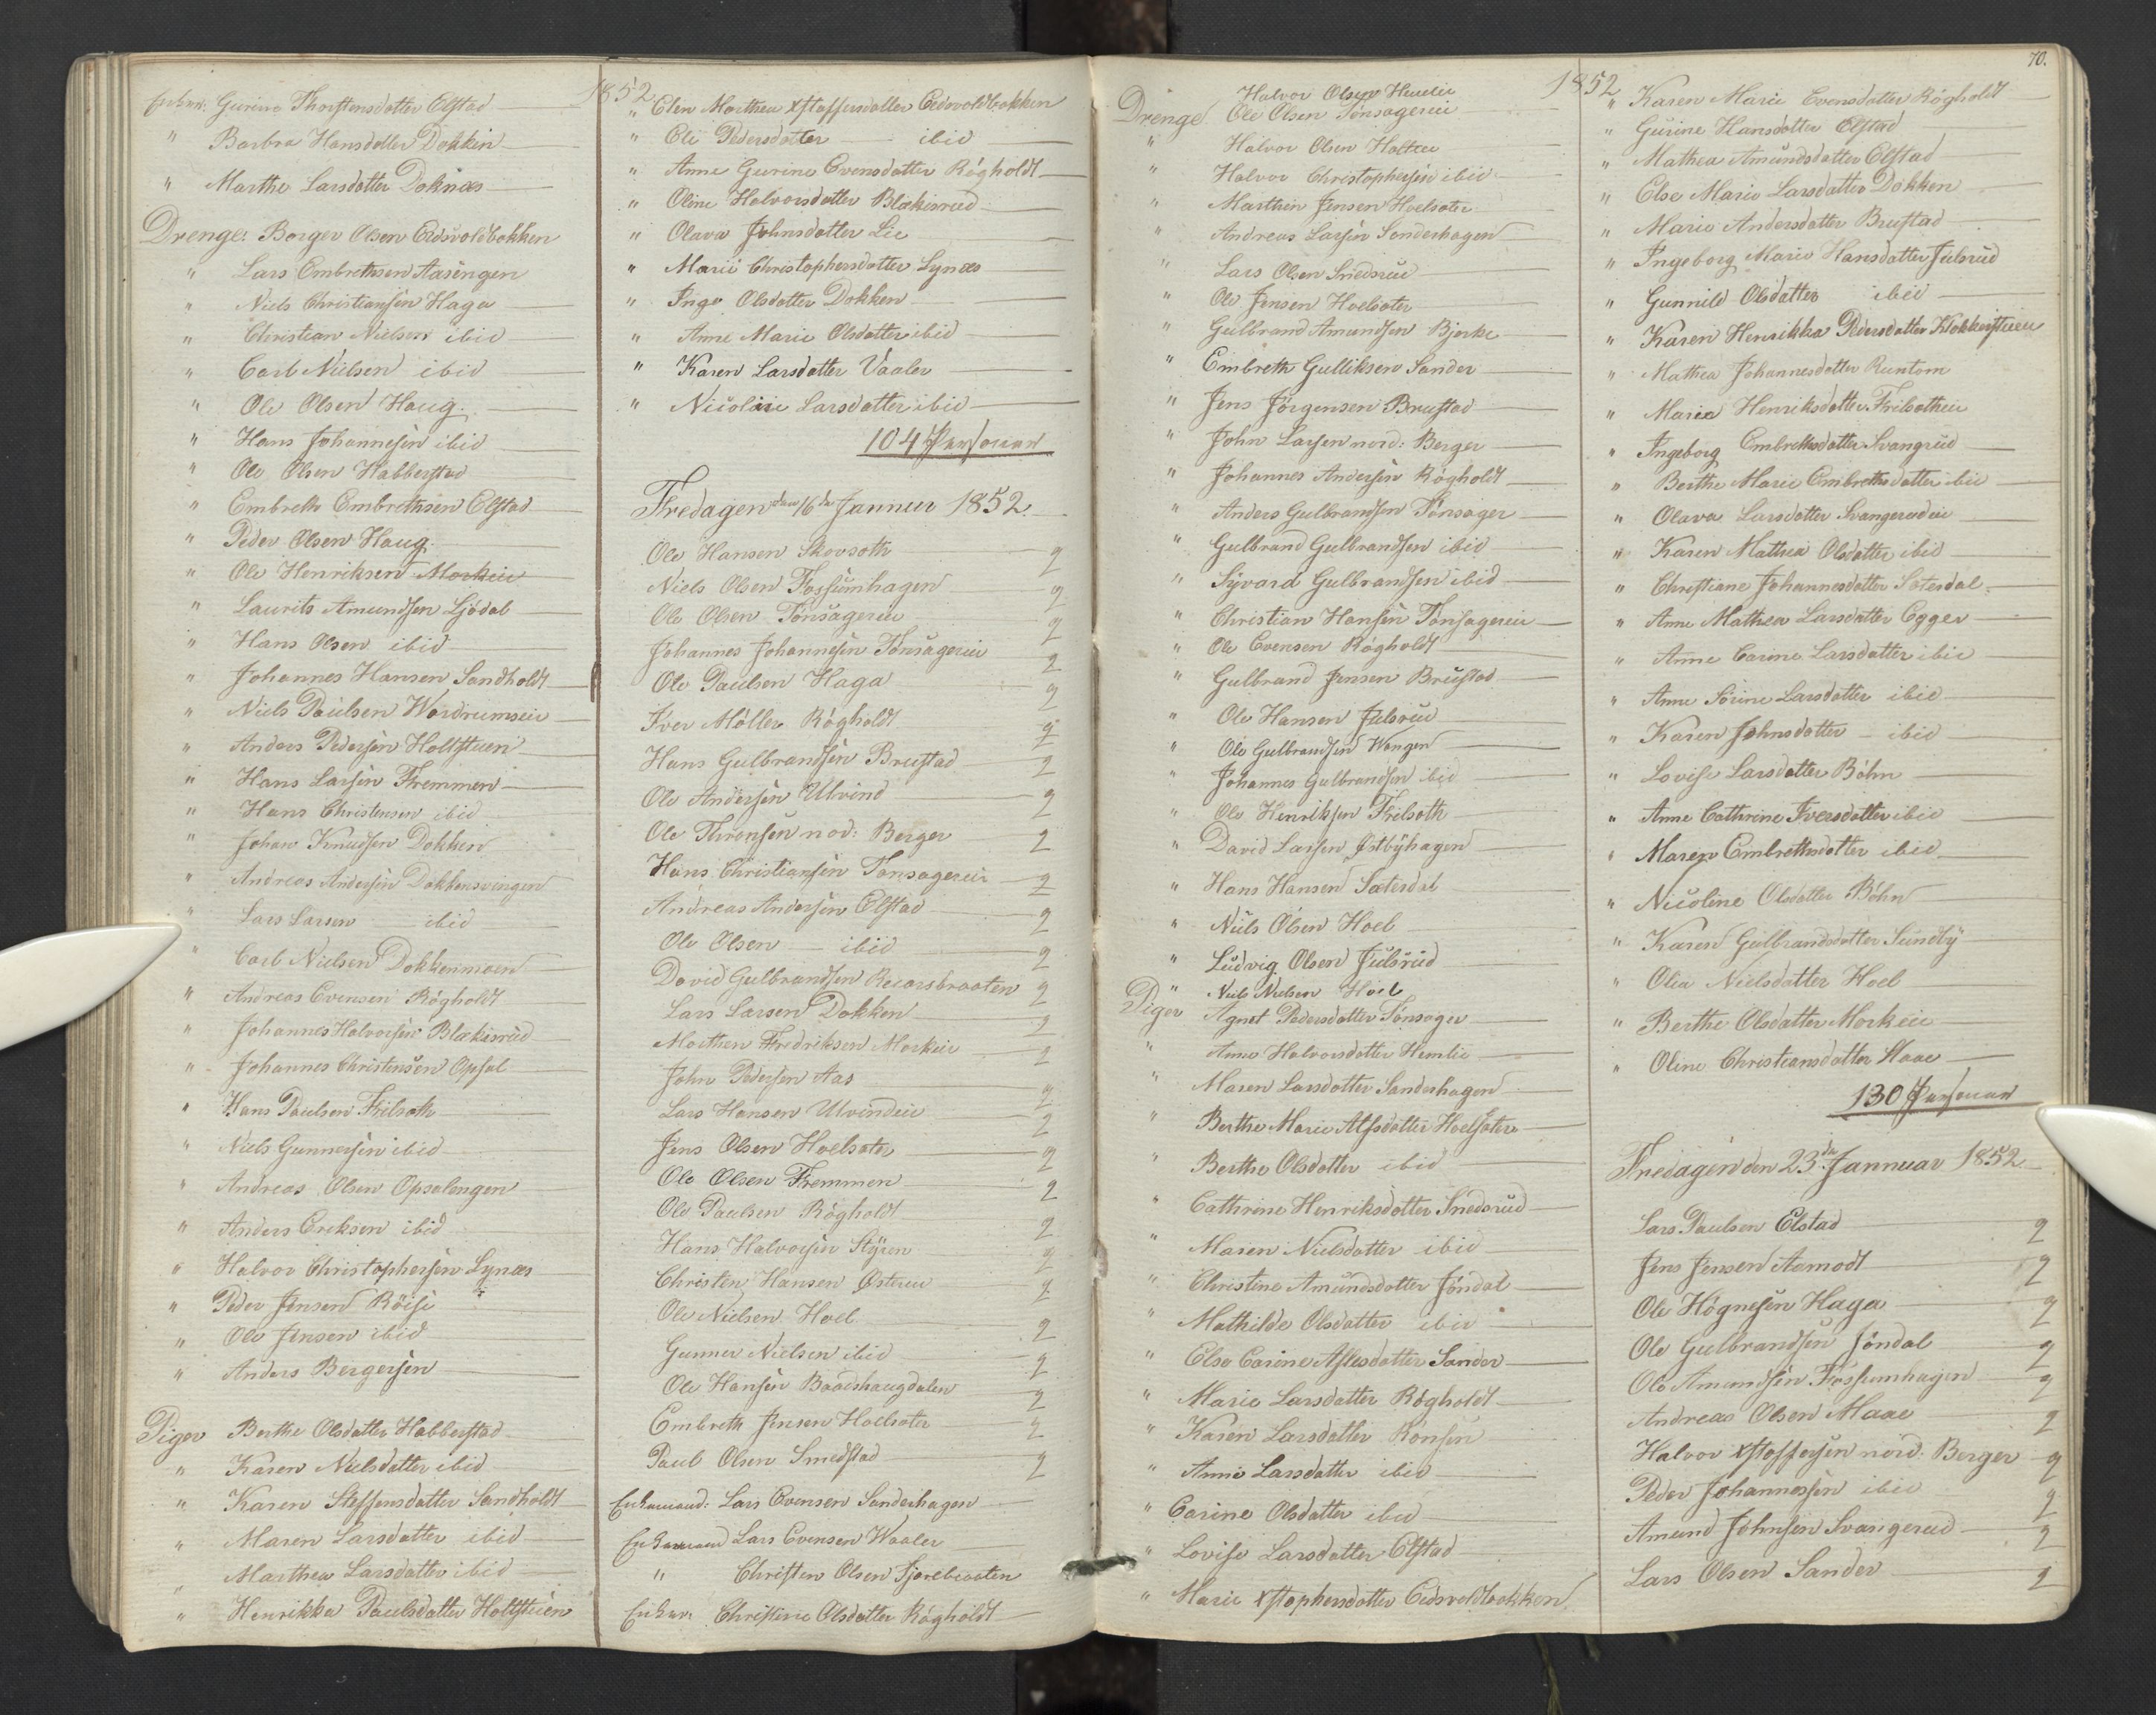 1852
Enkun: Gurine Thorstensdatter Elstad
" Barbra Hansdatter Dokken
" Marthe Larsdatter Doknæs
Drenge: Borger Olsen Eidsvoldbakken
" Lars Embrethsen Aasengen
" Niels Christiansen Haga
" Christian Nielsen ibid
" Carl Nielsen ibid
" Ole Olsen Haug
" Hans Johannesen ibid
" Ole Olsen Habberstad
" Embreth Embrethsen Elstad
" Peder Olsen Haug
" Ole Henriksen Morkeie
" Laurits Amundsen Ljödal
" Hans Olsen ibid
" Johannes Hansen Sandholdt
" Niels Paulsen Wordrumseie
" Anders Pedersen Holtstuen
" Hans Larsen Fremmen
" Hans Christensen ibid
" Johan Knudsen Dokken
" Andreas Andersen Dokkensvingen
" Lars Larsen ibid
" Carl Nielsen Dokkenmoen
" Andreas Evensen Rögholdt
" Johannes Halvorsen Blækisrud
" Johannes Christensen Opsal
" Hans Paulsen Frilsæth
" Niels Gunnersen ibid
" Andreas Olsen Opsalengen
" Anders Ereksen ibid
" Halvor Christophersen Lynæs
" Peder Jensen Röise
" Ole Jensen ibid
" Anders Bergersen
Piger Berthe Olsdatter Habberstad
" Karen Nielsdatter ibid
" Karen Steffensdatter Sandholdt
" Maren Larsdatter ibid
" Marthea Larsdatter ibid
" Henrikka Paulsdatter Holtstuen
" Elen Marthea Xstoffersdatter Eidsvoldbakken
" Eli Pedersdatter ibid
" Anne Gurine Evensdatter Rögholdt
" Oline Halvorsdatter Blækisrud
" Olava Johnsdatter Lie
" Marie Christophersdatter Lynæs
" Inge Olsdatter Dokken
" Anne Marie Olsdatter ibid
" Karen Larsdatter Vaaler
" Nicoline Larsdatter ibid
104 Personer
Fredagen den 16de Januar 1852.
Ole Hansen Skovsoth 2
Niels Olsen Fossumhagen 2
Ole Olsen Tönsagereie 2
Johannes Johannesen Tönsagereie 2
Ole Paulsen Haga 2
Iver Möller Rögholdt 2
Hans Gulbrandsen Brustad 2
Ole Andersen Ulvind 2
Ole Thronsen nod: Berger 2
Hans Christiansen Tonsagereie 2
Andreas Andersen Elstad 2
Ole Olsen ibid 2
David Gulbrandsen Reiersbraaten 2
Lars Larsen Dokken 2
Morthen Fredriksen Morkeie 2
John Pedersen Aas 2
Lars Hansen Ulvindeie 2
Jens Olsen Hoelsæter 2
Ole Olsen Fremmen 2
Ole Paulsen Rögholdt 2
Hans Halvorsen Styren 2
Christen Hansen Østereie 2
Ole Nielsen Hoel 2
Gunner Nielsen ibid 2
Ole Hansen Baadshaugdalen 2
Embreth Jensen Hoelsæter 2
Paul Olsen Smedstad 2
Enkemand: Lars Evensen Sanderhagen
Enkemand Lars Evensen Waaler
" Christen Olsen Fjorebraaten
Enkun: Christine Olsdatter Rögholdt
70.
1852
Halvor Olsen Humlie
Drenge Ole Olsen Tönsagereie
" Halvor Olsen Holtee
" Halvor Christophersen ibid
" Marthin Jensen Hoelsæter
" Andreas Larsen Sanderhagen
" Lars Olsen Snedsrud
" Ole Jensen Hoelsæter
" Gulbrand Amundsen Bjerke
" Embreth Gulliksen Sander
" Jens Jörgensen Brustad
" John Larsen nord: Berger
" Johannes Andersen Rögholdt
" Anders Gulbrandsen Tönsager
" Gulbrand Gulbrandsen ibid
" Syvard Gulbrandsen ibid
" Christian Hansen Tönsagereie
" Ole Evensen Rögholdt
" Gulbrand Jensen Brustad
" Ole Hansen Julsrud
" Ole Gulbrandsen Wangen
" Johannes Gulbrandsen ibid
" Ole Henriksen Frilsæth
" David Larsen Østbyhagen
" Hans Hansen Sæterdal
" Niels Olsen Hoel
" Ludvig Olsen Julsrud
" Niels Nielsen Hoel
Piger Agnet Pedersdatter Tönsager
" Anne Halvorsdatter Humlie
" Maren Larsdatter Sanderhagen
" Berthe Marie Alfsdatter Hoelsæter
" Berthe Olsdatter ibid
" Cathrine Henriksdatter Snedsrud
" Maren Nielsdatter ibid
" Christine Amundsdatter Jöndal
" Mathilde Olsdatter ibid
" Else Carine Aslesdatter Sander
" Marie Larsdatter Rögholdt
" Karen Larsdatter Rönsen
" Anne Larsdatter ibid
" Carine Olsdatter ibid
" Lovise Larsdatter Elstad
" Marie Xstophersdatter Eidsvoldbakken
" Karen Marie Evensdatter Rögholdt
" Gurine Hansdatter Elstad
" Mathea Amundsdatter Elstad
" Else Marie Larsdatter Dokken
" Marie Andersdatter Brustad
" Ingeborg Marie Hansdatter Julsrud
" Gunnild Olsdatter ibid
" Karen Henrikka Pedersdatter Klokkerstuen
" Mathea Johannesdatter Runtom
" Maria Henriksdatter Frilsætheie
" Ingeborg Embrethsdatter Svangrud
" Berthe Marie Embrethsdatter ibid
" Olava Larsdatter Svangerudeie
" Karen Mathea Olsdatter ibid
" Christiane Johannesdatter Sæterdal
" Anne Mathea Larsdatter Egger
" Anne Carine Larsdatter ibid
" Anne Sörine Larsdatter ibid
" Karen Johnsdatter ibid
" Lovise Larsdatter Böhn
" Anne Cathrine Iversdatter ibid
" Maren Embrethsdatter ibid
" Nicoline Olsdatter Böhn
" Karen Gulbrandsdatter Sundby
" Olia Nielsdatter Hoel
" Berthe Olsdatter Morkeie
" Oline Christiansdatter Haae
130 Personer
Fredagen den 23de Jannuar 1852
Lars Paulsen Elstad 2
Jens Jensen Aamodt 2
Ole Högnesen Haga 2
Ole Gulbrandsen Jöndal 2
Ole Amundsen Fossumhagen 2
Andreas Olsen Maae 2
Halvor Xstoffersen nord: Berger 2
Peder Johannessen ibid 2
Amund Johnsen Svangerud 2
Lars Olsen Sander 2